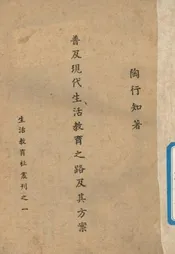 陶行知著
普及現代生活教育之路及其方案
生活教育社叢刊之一